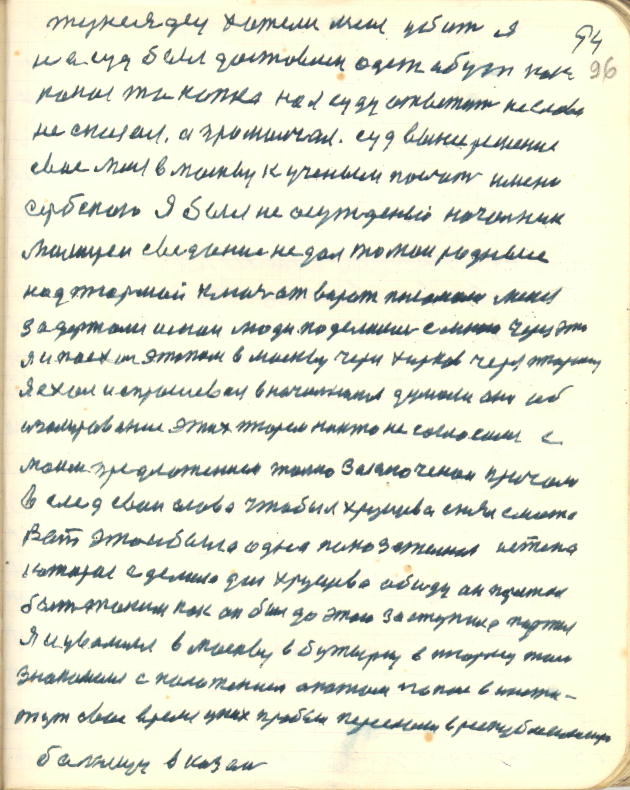 тунеядец хотели меня убит я
на суд был доставлен одет обут как
94
96
попал та копка на суду ответит не слова
не сказал, а промолчал. суд вынес решение
свое меня в москву к ученым послат имени
сербского Я был не осужденый началник
милиции сведение не дал то мои родные
над тюрмой ключ от ворот меня
задержали и мои люди поделилис с мною через это
я и поехал этапом в москву через харков через тюрму
я ехал и спрашевал в началника думали они об
изолирование этих тюрем никто не согласился с
моим предложением толко заключеная причали
в след свои слова чтобы хрущева снят с моста
Вот это была одна показателная истена
которая сделала для хрущева обиду он
бат таким как он был до этого заступился партия
Я и увалился в москву в бутырку в тюрму там
знакомился с положением а потом попал в инсти-
тут свое время у них пробыл перевели в республиканскую
болницу в казан